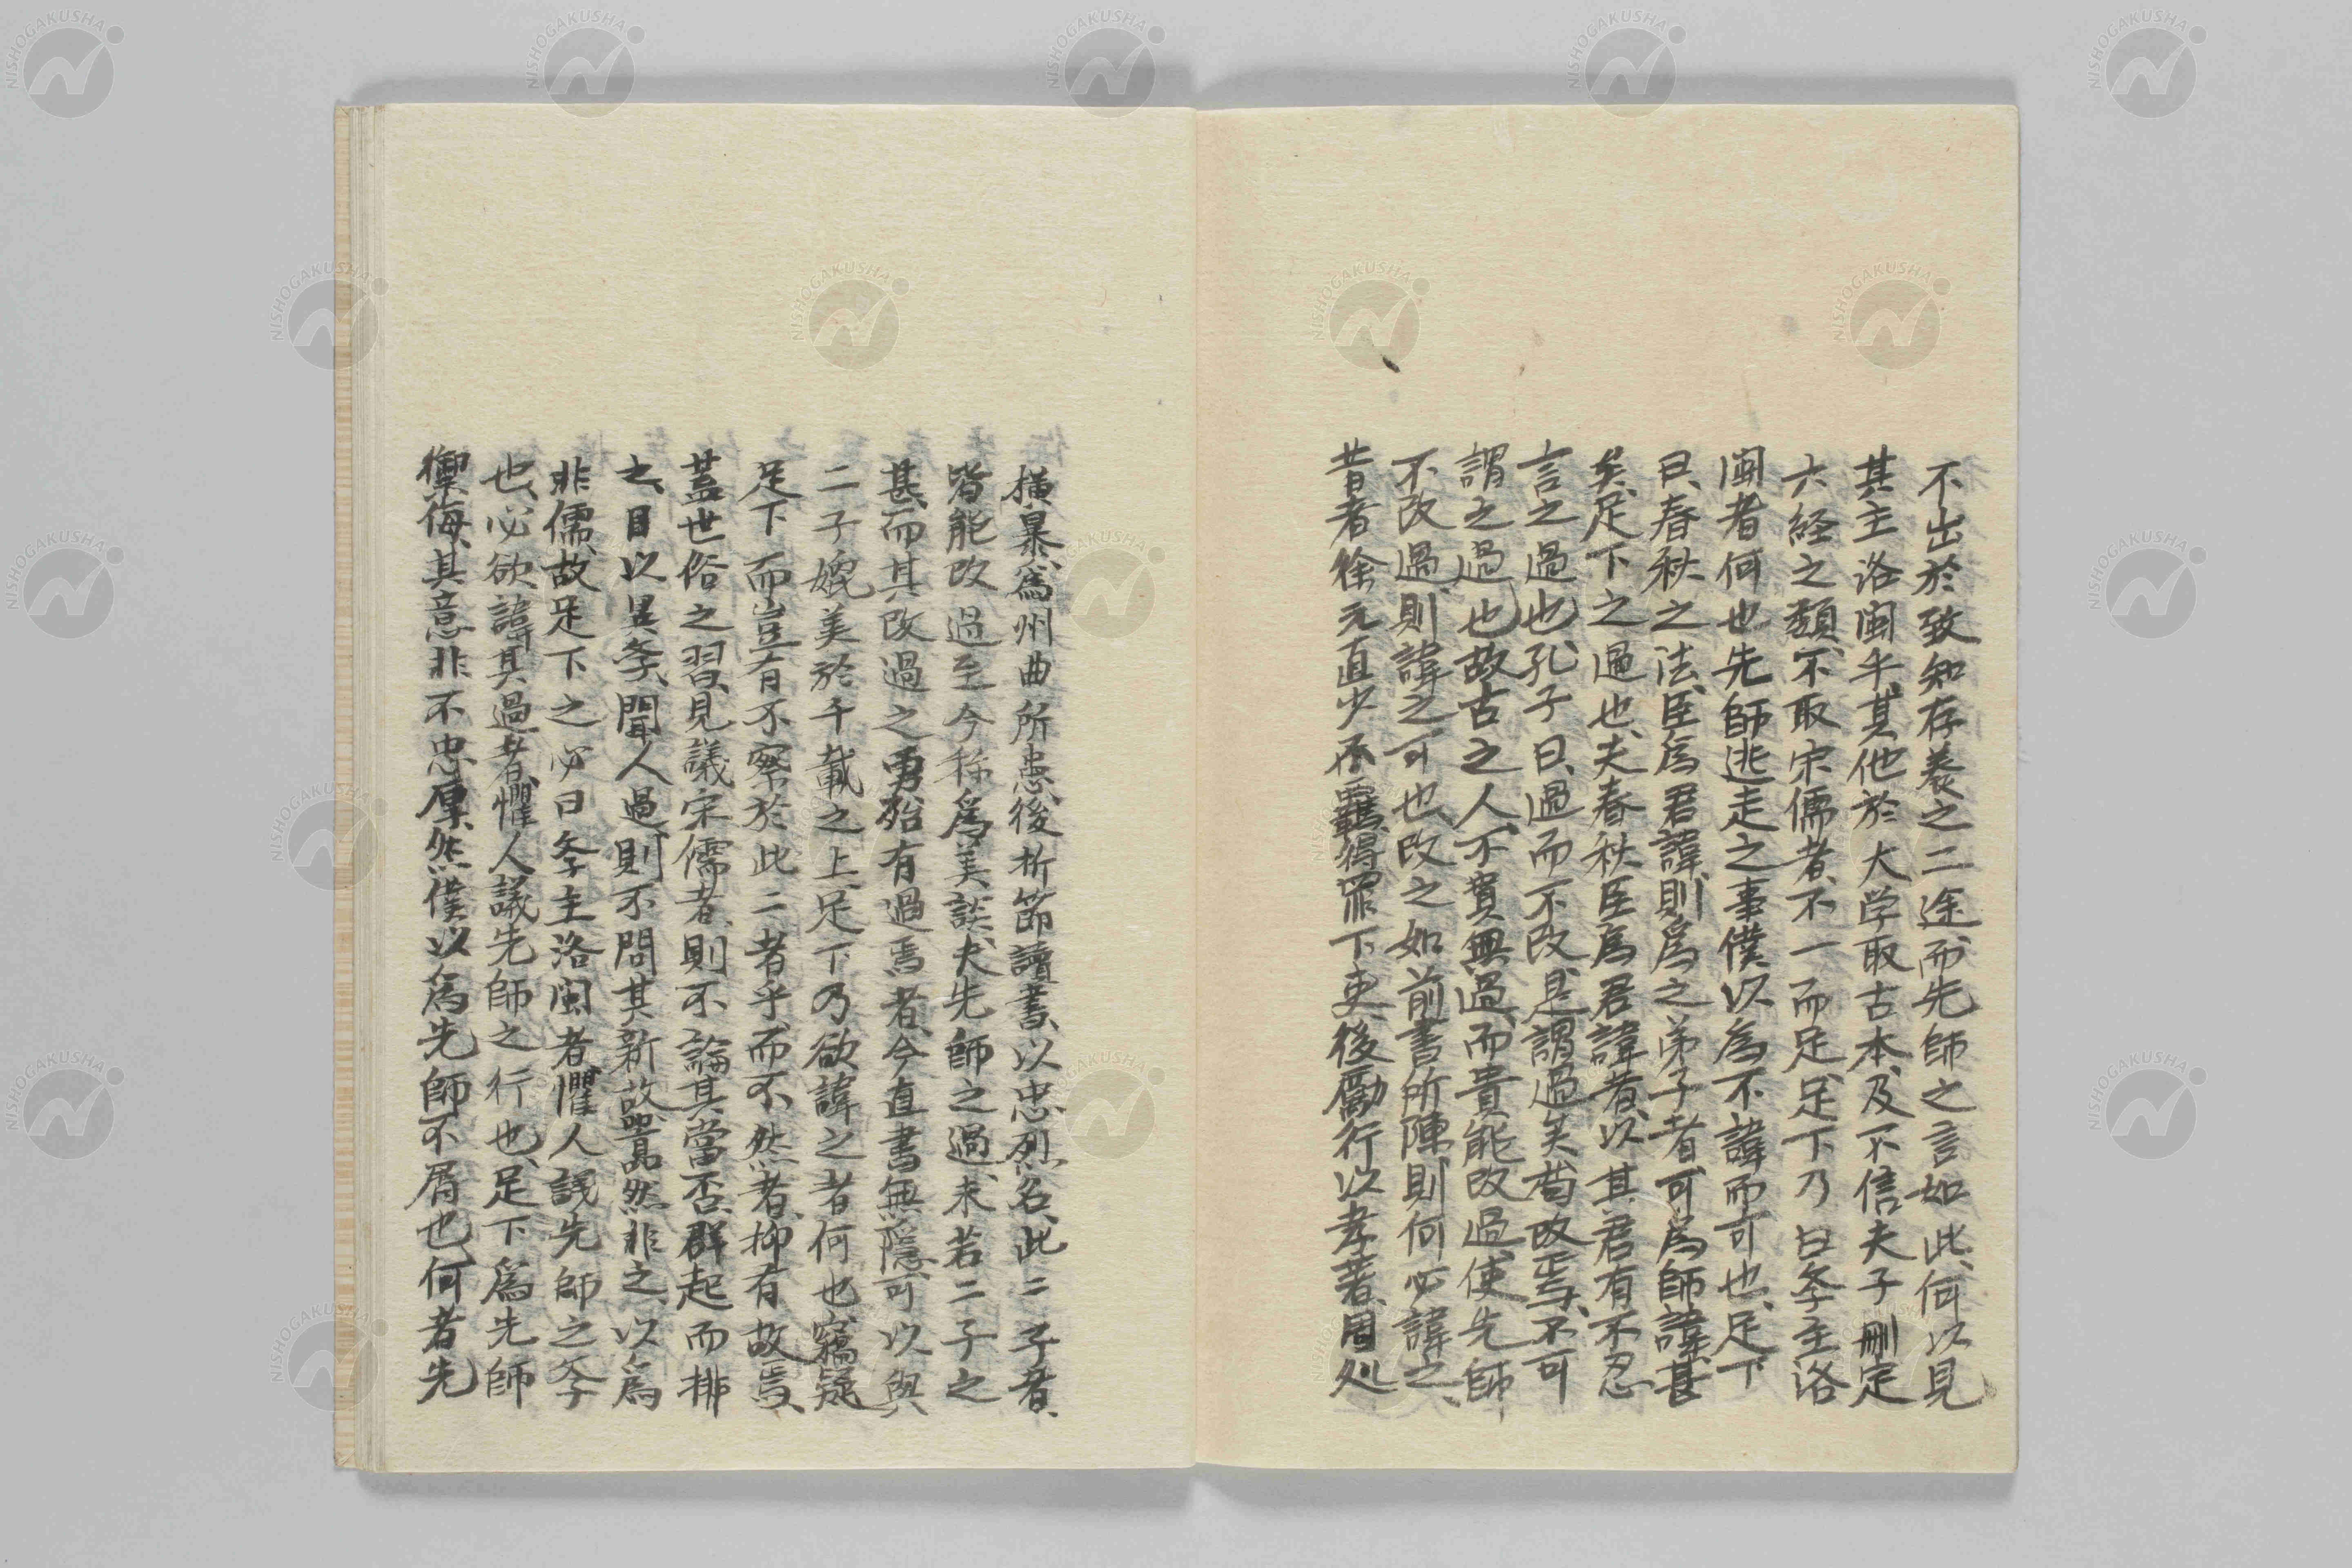 不出於致知存養之二途而先師之言如此何以見
其主洛閩乎其他於大学取古本及不信夫子刪定
六経之類不取宋儒者不一而足足下乃曰孝主洛
閩者何也先師逃走之事僕以為不諱而可也足下
曰春秋之法臣為君諱則為之弟子者可為師諱甚
矣足下之過也夫春秋臣為君諱者以其君有不忍
言之過也孔子曰過而不改是謂過矣苟改焉不可
謂之過也故古之人不貴無過而貴能改過使先師
不改過則諱之可也改之如前書所陳則何必諱之
昔者徐元直少不羈得罪下吏後勵行以孝著周処
橫暴為州曲所患後折節讀書以忠烈名此二子者
皆能改過至今称為美談夫先師之過未若二子之
甚而其改過之勇殆有過焉者今直書無隱可以與
二子媲美於千載之上足下乃欲諱之者何也竊疑
足下而豈有不察於此二者乎而不然者抑有故焉
蓋世俗之習見議宋儒者則不論其當否群起而排
之目以異孝聞人過則不問其新故囂然非之以為
非儒故足下之必曰孝主洛閩者懼人議先師之孝
也必欲諱其過者懼人議先師之行也足下為先師
禦侮其意非不忠厚然僕以為先師不屑也何者先
NISHOGAKUSHA